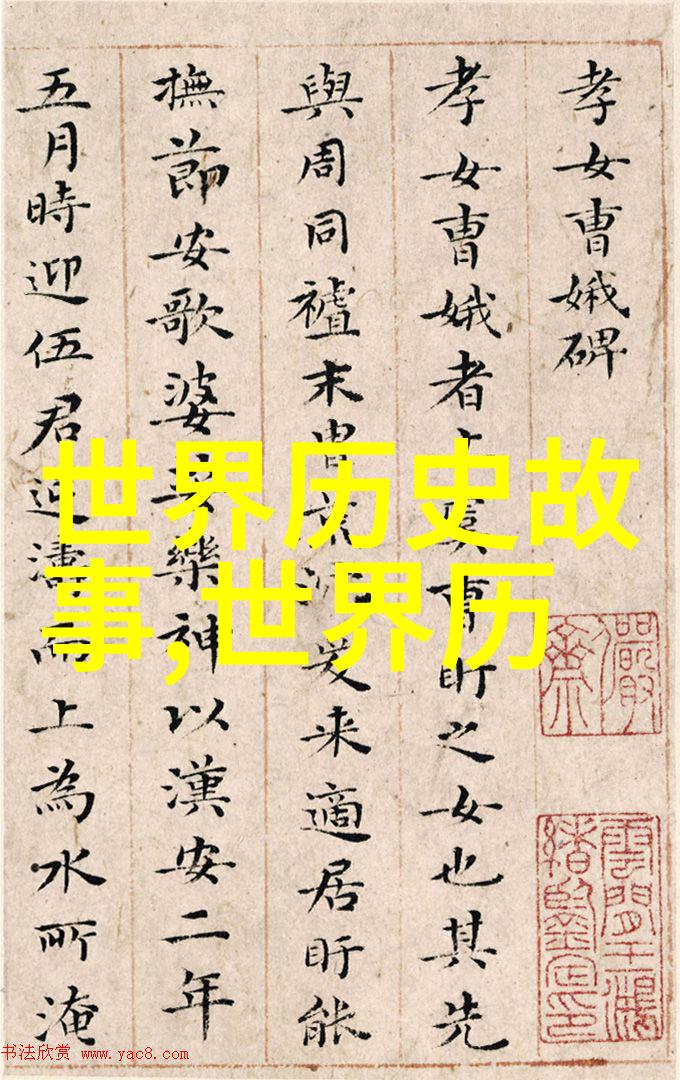 孝女曹娥碑
孝女曹娥者上虞曹盱之女也其先
與周同禮末胄荒沉爰来適居盱能
撫節安歌婆娑樂神以漢安二年
五月時迎伍君逆濤而上為水所淹
世界历史故
事,世界历
书法欣赏 www.yac8.com